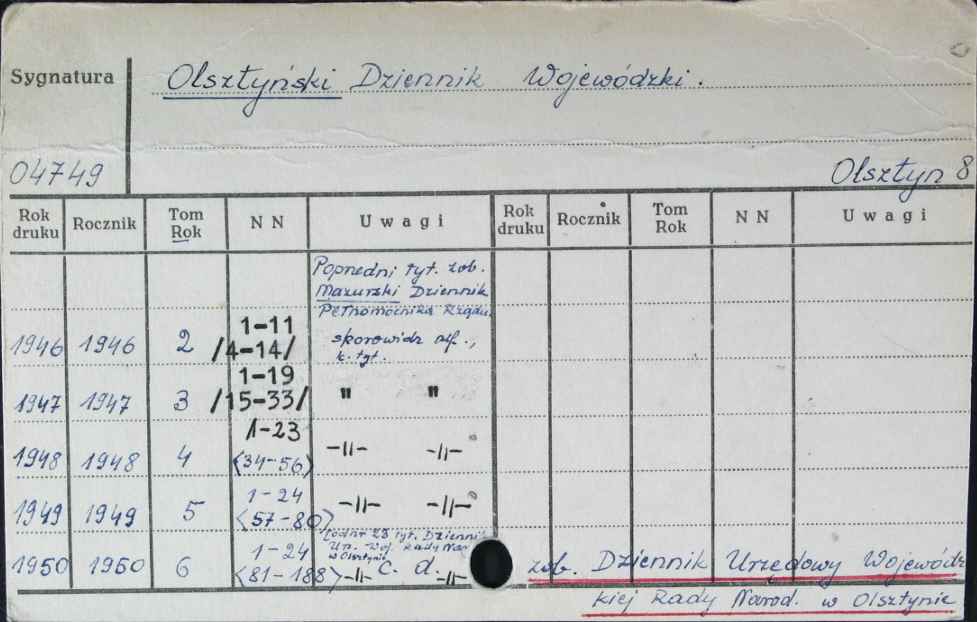 Sygnatura
Olsztyński Dziennik Wojewódzki.
04749
Olsztyn 8
Rok druku Rocznik Tom Rok N N Uwagi Rok druku Rocznik Tom Rok N N Uwagi
Poprzedni tyt. zob.
Mazurski Dziennik
Pełnomocnika Rządu.
1946 1946 2 1-11 /4-14/ skorowidz alf., k. tyt.
1947 1947 3 1-19 /15-33/ " "
1948 1948 4 1-23 <34-56> -||- -||-
1949 1949 5 1-24 <57-80> -||- -||-
23 tyt. Dziennik
Woj. Rady Nar
w Olsztynie
1950 1950 6 1-24 <81-188> -||- c. d. -||- zob. Dziennik Urzędowy Wojewódz
kiej Rady Narod. w Olsztynie